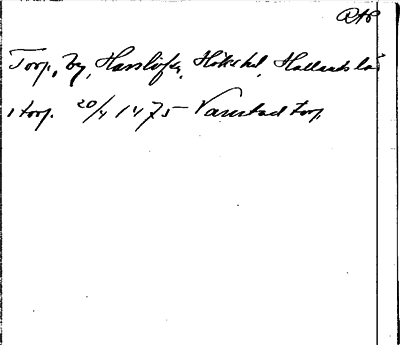 RAP
Torp, By, Harslöfs, Hökhd, Hallands lä
i torp. 20/4 1475 Vanstad torp